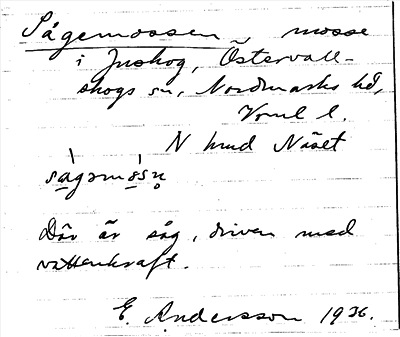 Sågemossen, mosse
i Juskog, Östervall-
skogs sn, Nordmarks hd,
Vrml l.
N hmd Näset
sàgəmósn̥
Där är såg, driven med
vattenkraft.
E. Andersson 1936.